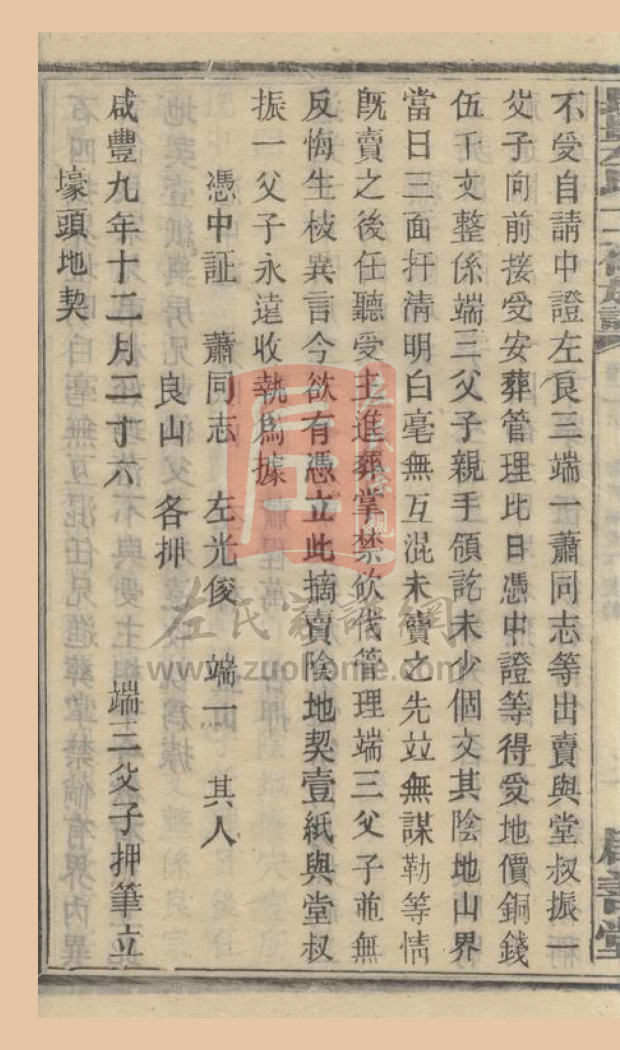 不受自請中證左良三端一蕭同志等出賣與堂叔振一
父子向前接受安葬管理比日憑中證等得受地價銅錢
伍千文整係端三父子親手領訖未少個文其陰地山界
當日三面扦清明白毫無互混未賣之先竝無謀勒等情
旣賣之後任聽受主進葬掌禁欲伐管理端三父子並無
反悔生枝異言今欲有憑立此摘賣陰地契壹紙與堂叔
振一父子永遠收執爲據
憑中証 蕭同志 左光俊 端一 其人
良山 各押
咸豐九年十二月二十六 端三父子押筆立
壕頭地契
左氏家譜網
www.zuohome.com